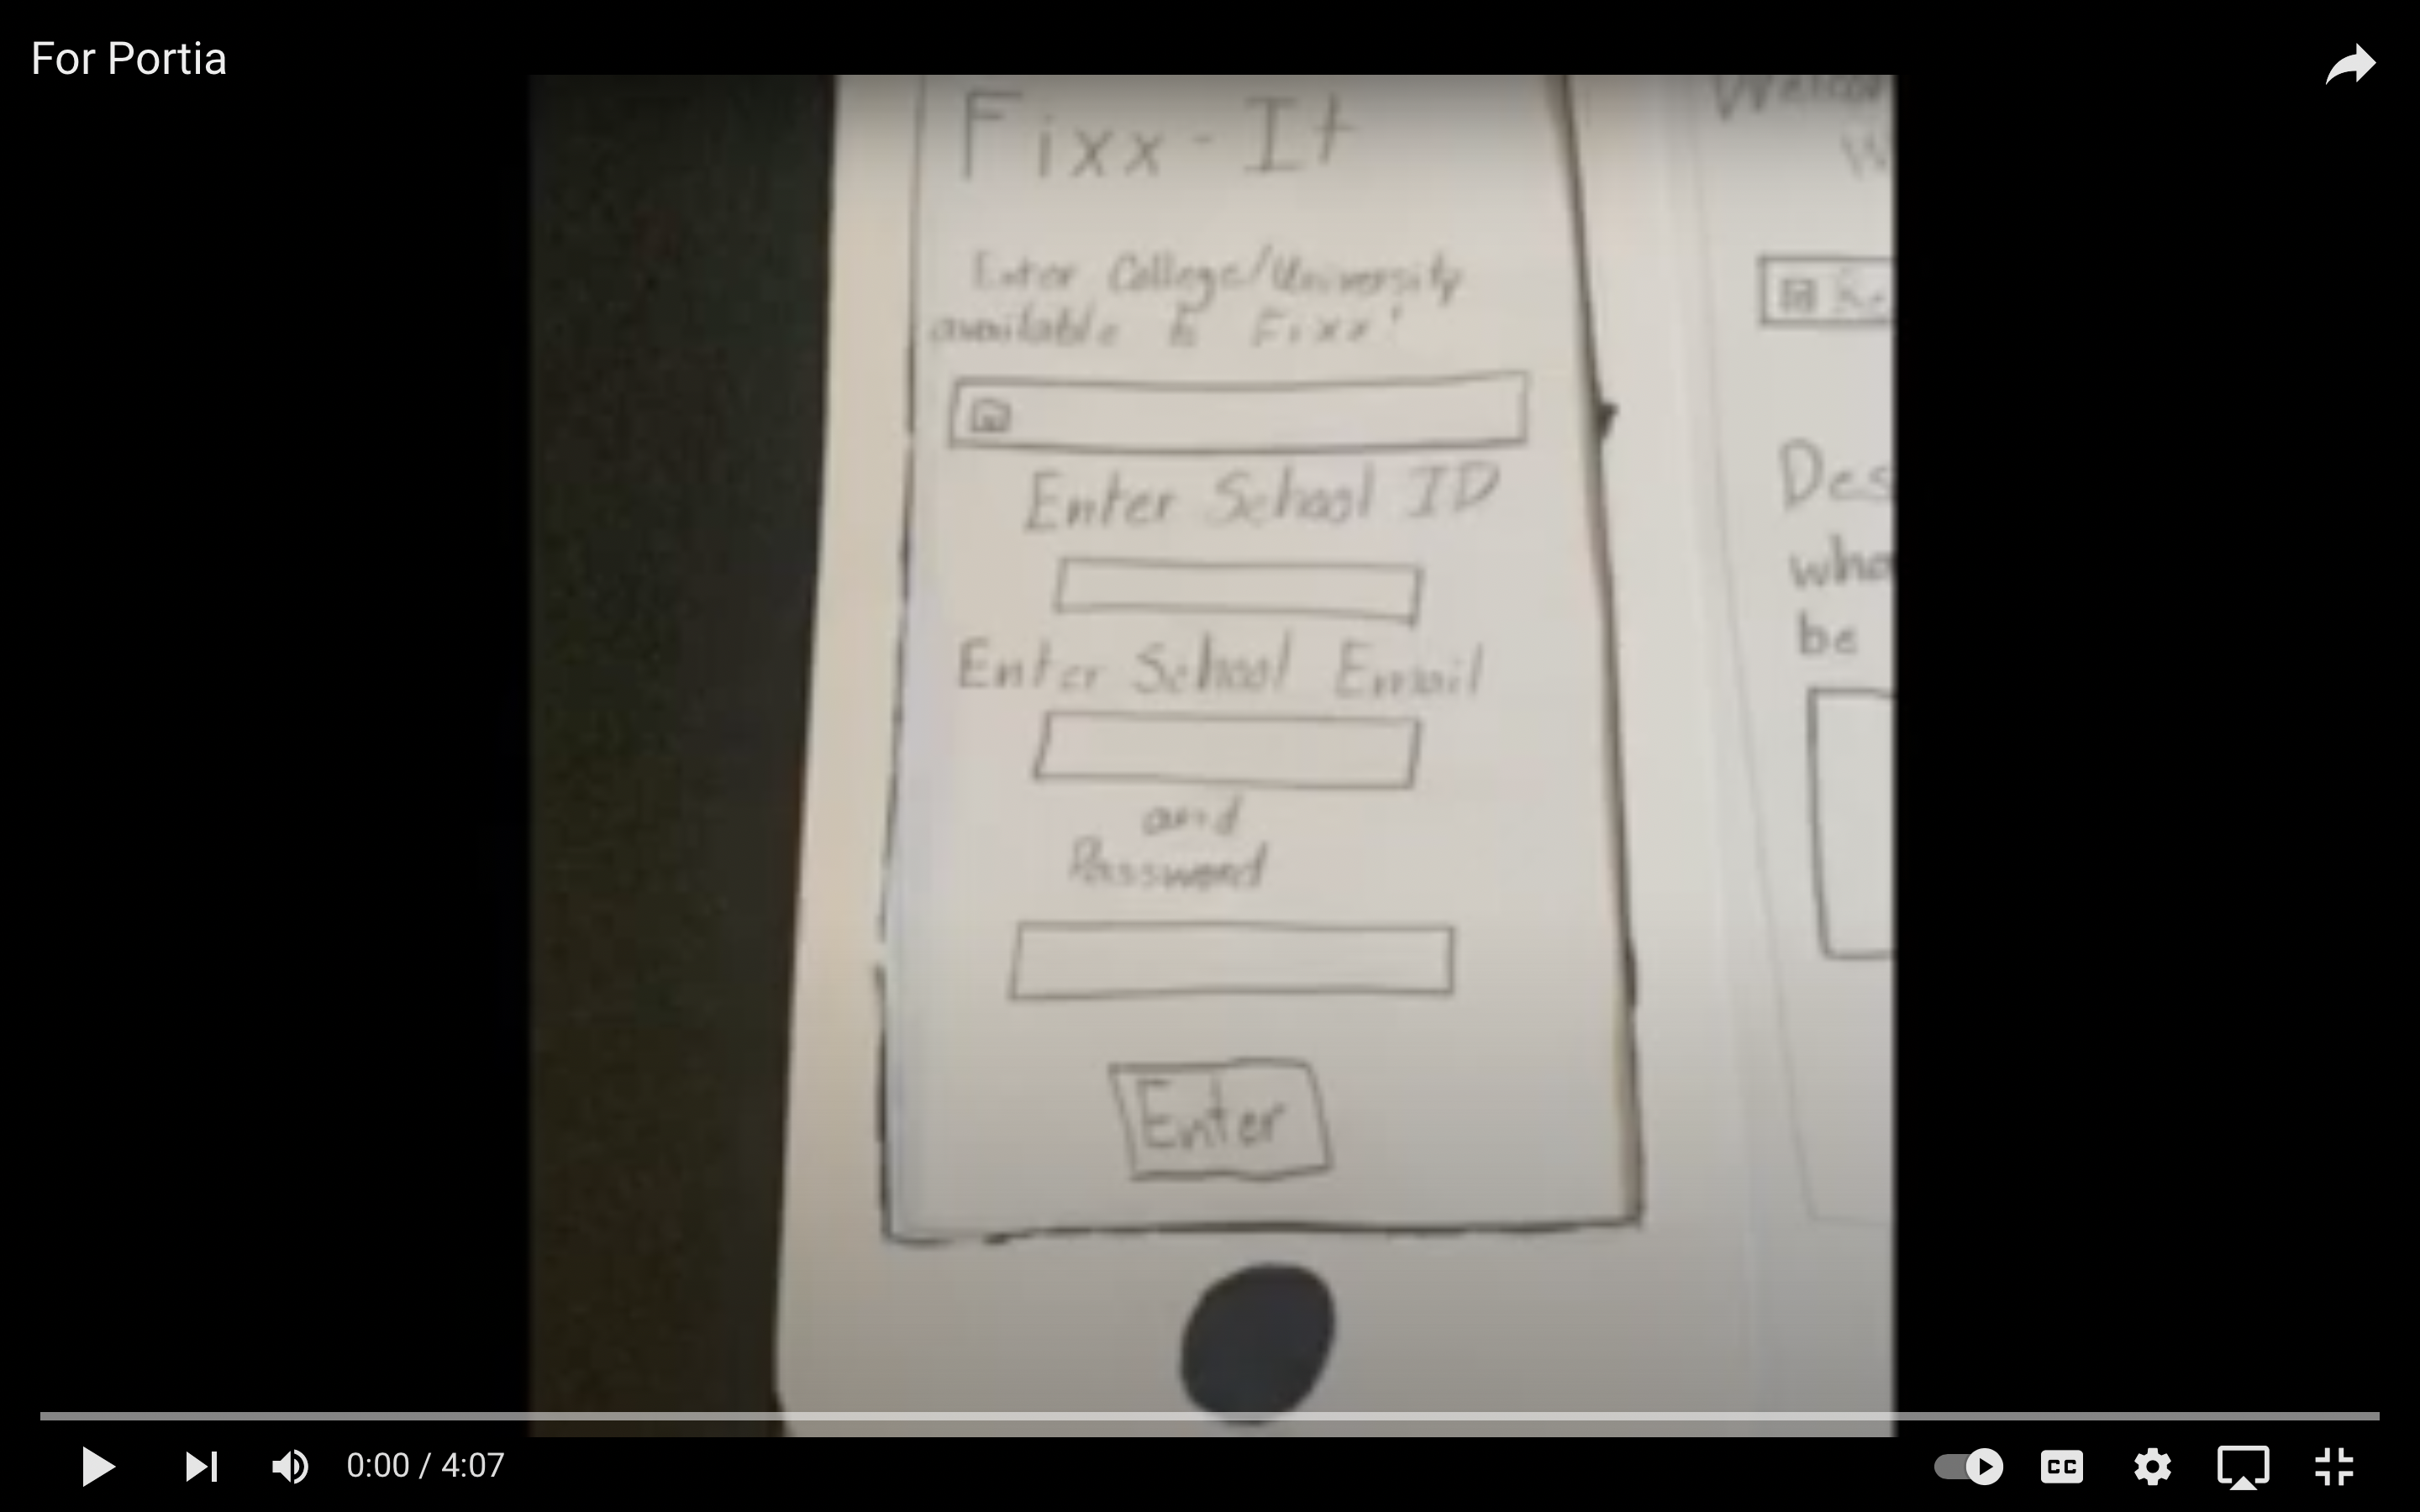 For Portia
Fixx-It
Enter College/University
available to Fixx!
Enter School ID
Enter School Email
and
Password
Enter
Des
who
be
0:00 / 4:07
CC